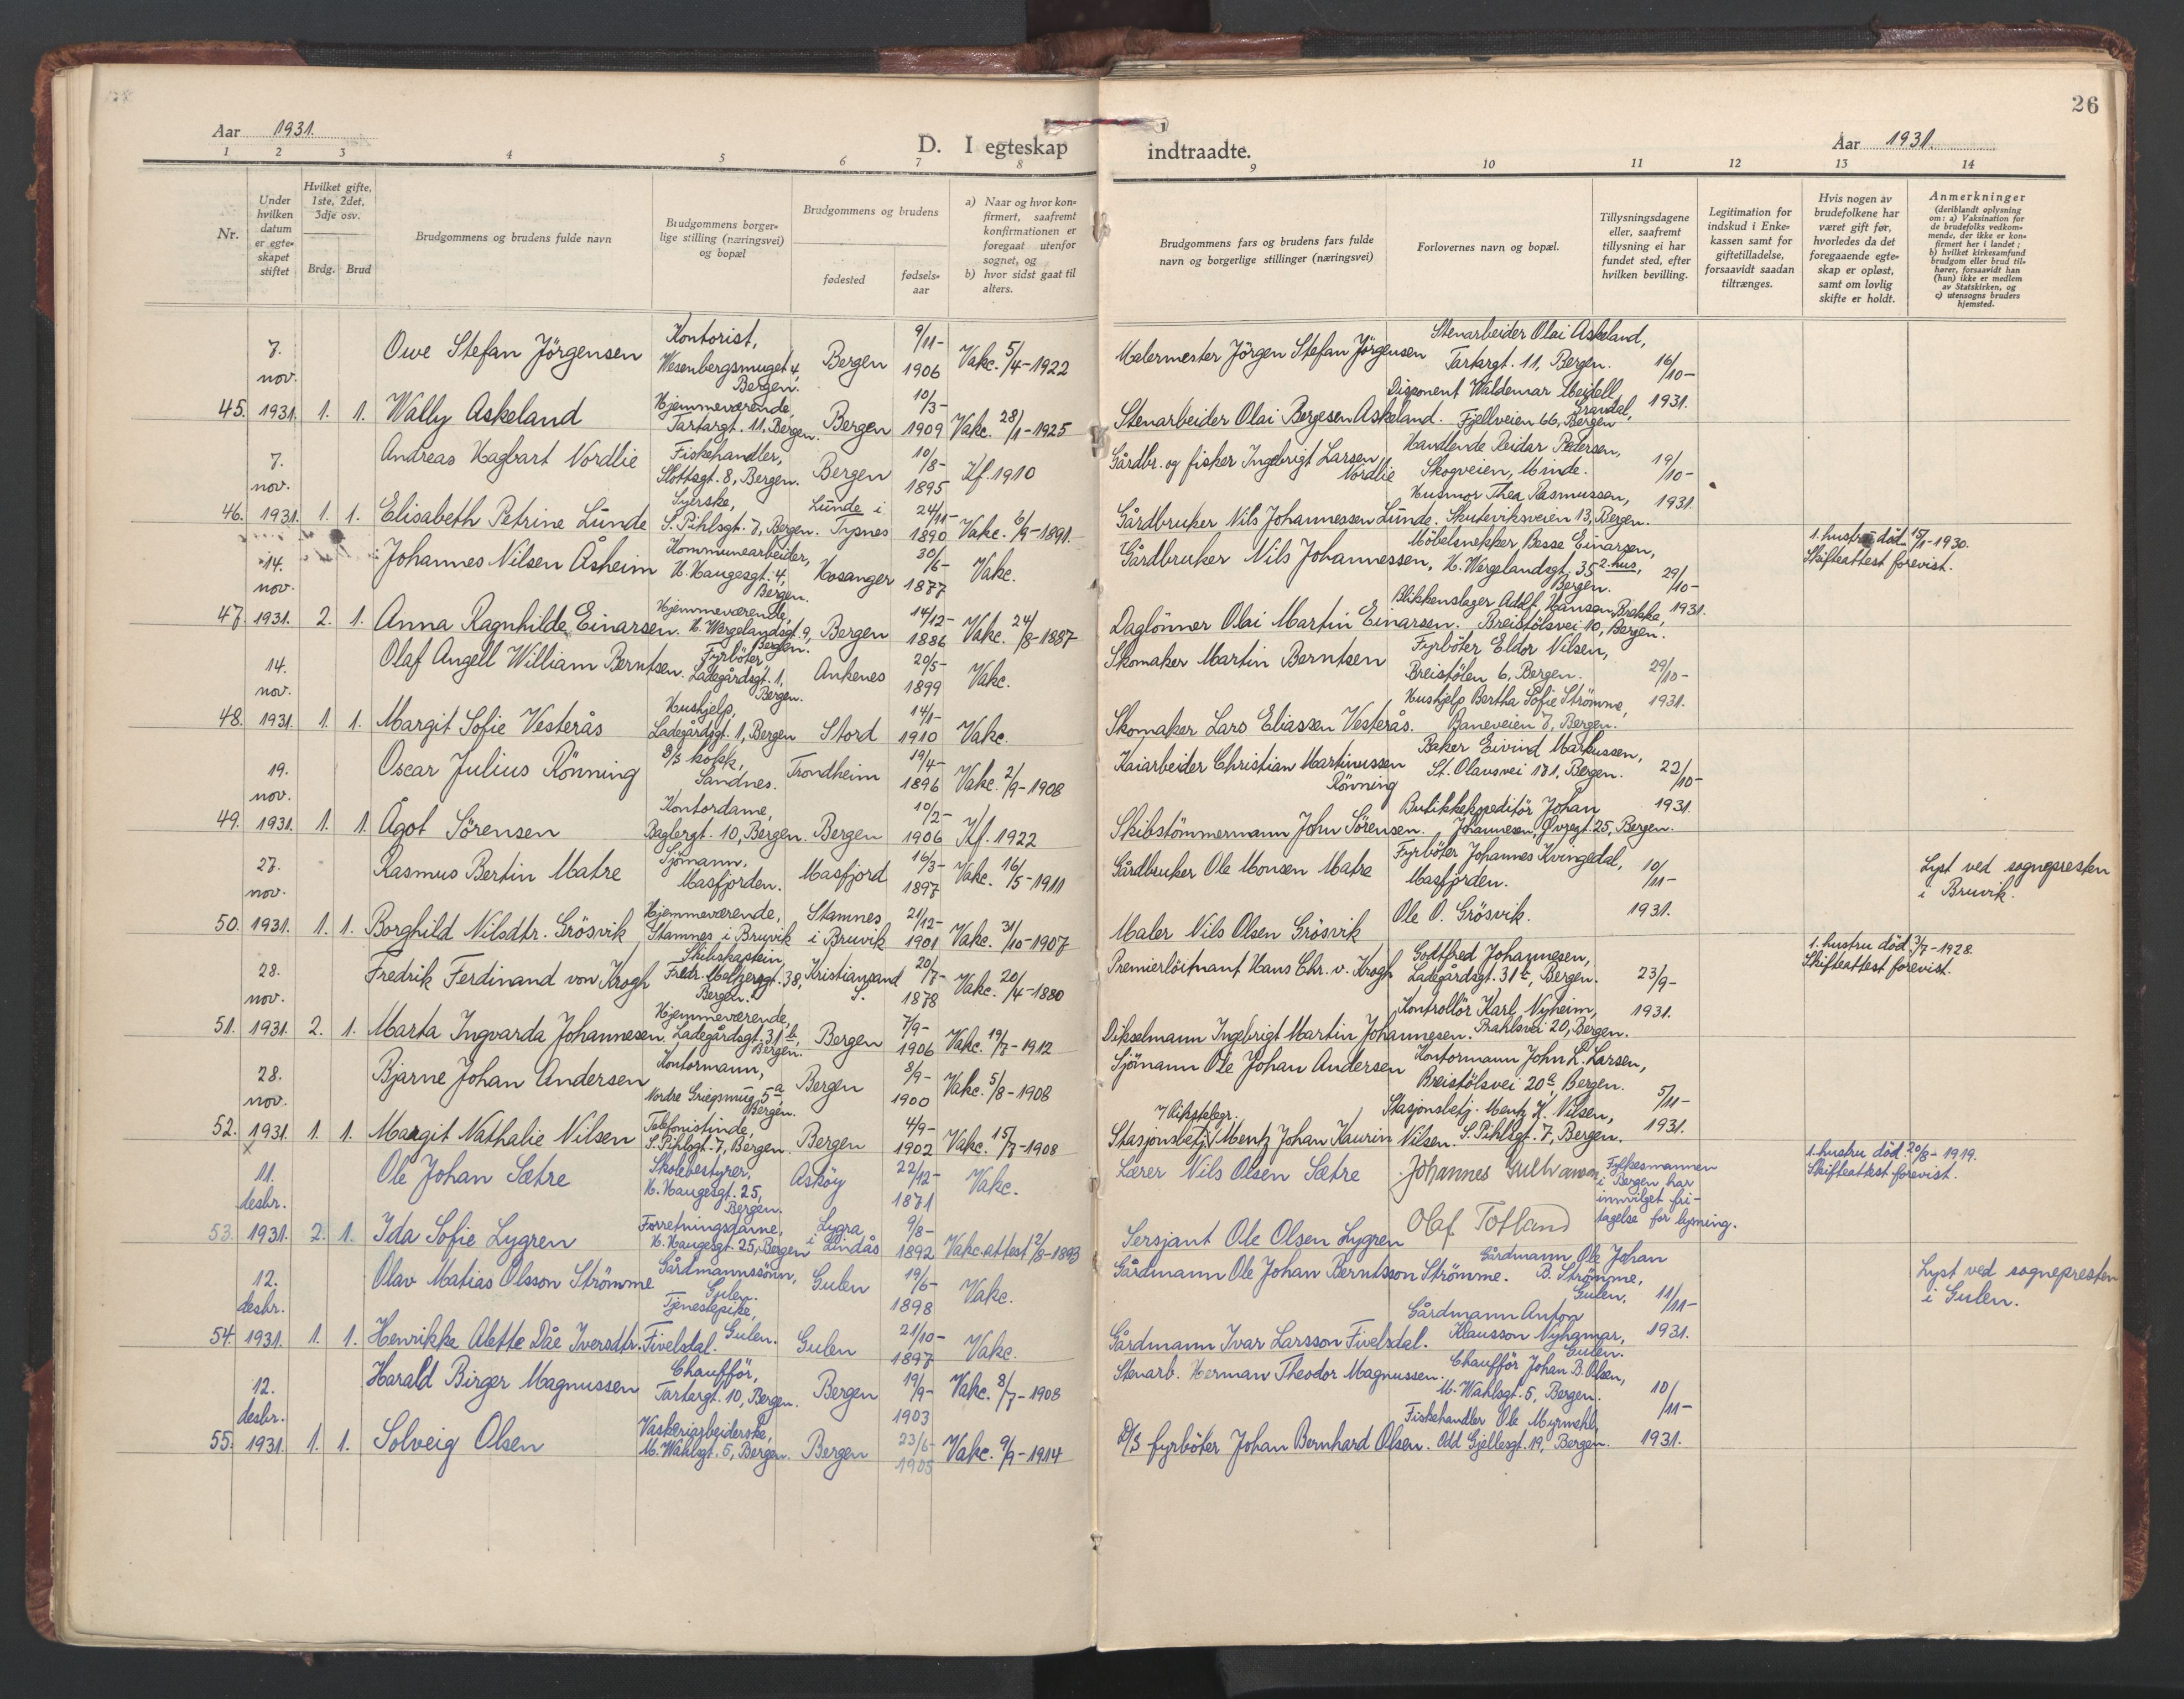 26
Aar 1931.
D. I egteskap indtraadte.
Aar 1931.
1 2 3 4 5 6 7 8 9 10 11 12 13 14
Nr.
Under hvilken datum er egteskapet stiftet
Hvilket gifte, 1ste, 2det, 3dje osv.
Brdg. Brud
Brudgommens og brudens fulde navn
Brudgommens borgerlige stilling (næringsvei) og bopæl
Brudgommens og brudens
fødested
fødselsaar
a) Naar og hvor konfirmert, saafremt konfirmationen er foregaat utenfor sognet, og
b) hvor sidst gaat til alters.
Brudgommens fars og brudens fars fulde navn og borgerlige stillinger (næringsvei)
Forlovernes navn og bopæl.
Tillysningsdagene eller, saafremt tillysning ei har fundet sted, efter hvilken bevilling.
Legitimation for indskud i Enkekassen samt for giftetilladelse, forsaavidt saadan tiltrænges.
Hvis nogen av brudefolkene har været gift før, hvorledes da det foregaaende egteskap er opløst, samt om lovlig skifte er holdt.
Anmerkninger
(deriblandt oplysning om: a) Vaksination for de brudefolks vedkommende, der ikke er konfirmert her i landet; b) hvilket kirkesamfund brudgom eller brud tilhører, forsaavidt han (hun) ikke er medlem av Statskirken, og c) utensogns bruders hjemsted.
45. 7. nov. 1931. 1. 1.
Owe Stefan Jörgensen
Kontorist, Wesenbergsmuget 4, Bergen.
Bergen 9/11-1906 Vakc. 5/4-1922
Malermester Jörgen Stefan Jörgensen
Stenarbeider Olai Askeland, Tartargt. 11, Bergen.
16/10-1931.
Wally Askeland
Hjemmeværende, Tartargt. 11, Bergen.
Bergen 10/3-1909 Vakc. 28/1-1925
Stenarbeider Olai Bergesen Askeland.
Disponent Waldemar Meidell, Fjellveien 66, Bergen
46. 7. nov. 1931. 1. 1.
Andreas Hagbart Nordlie
Fiskehandler, Slottsgt. 8, Bergen.
Bergen 10/8-1895 Kf. 1910
Gårdbr. og fisker Ingebrigt Larsen Nordlie
Handlende Reidar Pedersen, Skogveien, Minde.
19/10-1931
Elisabeth Petrine Lunde
Syerske, S. Pihlsgt. 7, Bergen.
Lunde i Tysnes 24/11-1890 Vakc. 6/9-1891.
Gårdbruker Nils Johannessen Lunde.
Husmor Thea Rasmussen, Skuteviksveien 13, Bergen.
47. 14. nov. 1931. 2. 1.
Johannes Nilsen Åsheim
Kommunearbeider, H. Haugesgt. 4, Bergen.
Hosanger 30/6-1877 Vakc.
Gårdbruker Nils Johannessen,
Möbelsnekker Basse Einarsen, H. Wergelandsgt. 35 2. hus, Bergen.
29/10-1931.
1. hustru död 15/1-1930. Skifteattest forevist.
Anna Ragnhilde Einarsen.
Hjemmeværende, H. Wergelandsgt. 9, Bergen.
Bergen 14/12-1886 Vakc. 24/8-1887
Daglönner Olai Martin Einarsen.
Blikkenslager Adolf Hansen Brekke, Breistölsvei 10, Bergen.
48. 14. nov. 1931. 1. 1.
Olaf Angell William Berntsen.
Fyrböter, Ladegårdsgt. 1, Bergen.
Ankenes 20/5-1899 Vakc.
Skomaker Martin Berntsen
Fyrböter Eldor Nilsen, Breistölen 6, Bergen.
29/10-1931.
Margit Sofie Vesterås
Hushjelp, Ladegårdsgt. 1, Bergen
Stord 14/1-1910 Vakc.
Skomaker Lars Eliassen Vesterås.
Hushjelp Bertha Sofie Strömme, Baneveien 7, Bergen.
49. 19. nov. 1931. 1. 1.
Oscar Julius Rönning
D/S kokk, Sandnes.
Trondheim 19/4-1896 Vakc. 2/9-1908
Kaiarbeider Christian Martinussen Rönning
Baker Eivind Markussen, St. Olavsvei 171, Bergen.
22/10-1931
Ågot Sörensen
Kontordame, Baglergt. 10, Bergen.
Bergen 10/2-1906 Kf. 1922
Skibstömmermann John Sörensen.
Butikkekspeditör Johan Johannesen, Øvregt. 25, Bergen.
50. 27. nov. 1931. 1. 1.
Rasmus Bertin Matre
Sjömann, Masfjorden.
Masfjord 16/3-1897 Vakc. 16/5-1911
Gårdbruker Ole Monsen Matre
Fyrböter Johannes Kvingedal, Masfjorden.
10/11-1931.
Lyst ved sognepresten i Bruvik.
Borghild Nilsdtr. Grösvik
Hjemmeværende, Stamnes i Bruvik
Stamnes i Bruvik 21/12-1901 Vakc. 31/10-1907
Maler Nils Olsen Grösvik
Ole O. Grösvik.
51. 28. nov. 1931. 2. 1.
Fredrik Ferdinand von Krogh
Skibskaptein, Fredr. Meltzersgt. 38, Bergen.
Kristiansand S. 20/7-1878 Vakc. 20/4-1880
Premierlöitnant Hans Chr. v. Krogh
Godtfred Johannesen, Ladegårdsgt. 31b, Bergen.
23/9-1931.
1. hustru död 3/7-1928. Skifteattest forevist.
Marta Ingvarda Johannesen.
Hjemmeværende, Ladegårdsgt. 31b, Bergen.
Bergen 7/9-1906 Vakc. 19/7-1912
Dikselmann Ingebrigt Martin Johannesen.
Kontrollör Karl Nyheim, Prahlsvei 20, Bergen.
52. 28. nov. 1931. 1. 1.
Bjarne Johan Andersen
Kontormann, Nordre Griegsmug 5a, Bergen.
Bergen 8/9-1900 Vakc. 5/8-1908
Sjömann Ole Johan Andersen
Kontormann John L. Larsen, Breistölsvei 20c, Bergen.
5/11-1931.
x
Margit Nathalie Nilsen
Telefonistinde, S. Pihlsgt. 7, Bergen.
Bergen 4/9-1902 Vakc. 15/7-1908
Stasjonsbetj. v/ Rikstelegr. Mentz Johan Kaurin Nilsen.
Stasjonsbetj. Mentz K. Nilsen, S. Pihlsgt. 7, Bergen.
53. 11. desbr. 1931. 2. 1.
Ole Johan Sætre
Skolebestyrer, H. Haugesgt. 25, Bergen.
Asköy 22/12-1871 Vakc.
Lærer Nils Olsen Sætre
Johannes
Fylkesmannen i Bergen har innvilget fritagelse for lysning.
1. hustru död 20/8-1919. Skifteattest forevist.
Ida Sofie Lygren
Forretningsdame, H. Haugesgt. 25, Bergen
Lygra, i Lindås 9/8-1892 Vakc.attest 2/8-1893
Sersjant Ole Olsen Lygren
Olaf Totland
54. 12. desbr. 1931. 1. 1.
Olav Matias Olsson Strömme
Gårdmannssönn, Gulen.
Gulen 19/6-1898 Vakc.
Gårdmann Ole Johan Berntsson Strömme.
Gårdmann Ole Johan B. Strömme, Gulen.
11/11-1931.
Lyst ved sognepresten i Gulen.
Henrikke Alette Dåe Iversdtr. Fivelsdal.
Tjenestepike, Gulen.
Gulen 21/10-1897 Vakc.
Gårdmann Ivar Larsson Fivelsdal.
Gårdmann Anton Klausson Nyhamar, Gulen.
55. 12. desbr. 1931. 1. 1.
Harald Birger Magnussen
Chaufför, Tartargt. 10, Bergen.
Bergen 19/9-1903 Vakc. 8/7-1908
Stenarb. Herman Theodor Magnussen.
Chaufför Johan B. Olsen, M. Wahlsgt. 5, Bergen.
10/11-1931.
Solveig Olsen
Vaskeriarbeiderske, M. Wahlsgt. 5, Bergen.
Bergen 23/6-1905 Vakc. 9/9-1914
D/S fyrböter Johan Bernhard Olsen.
Fiskehandler Ole Myrmehl, Odd Gjellesgt. 19, Bergen.